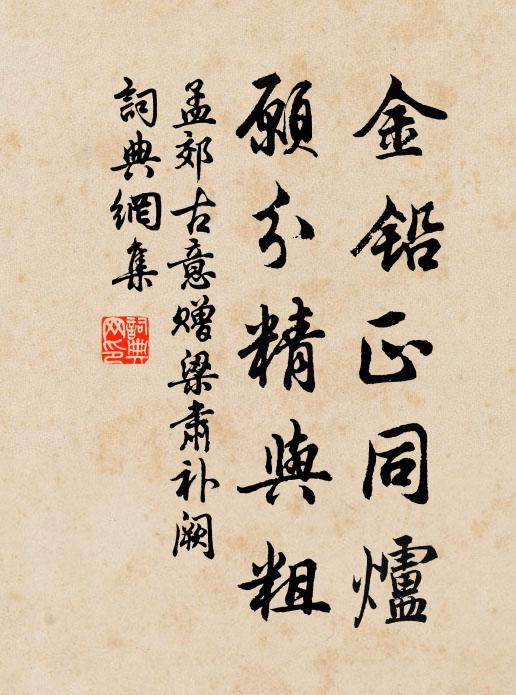 金鉛正同爐
願分精與粗
孟郊古意赠梁肅补阙
詞典網集
詞典網印